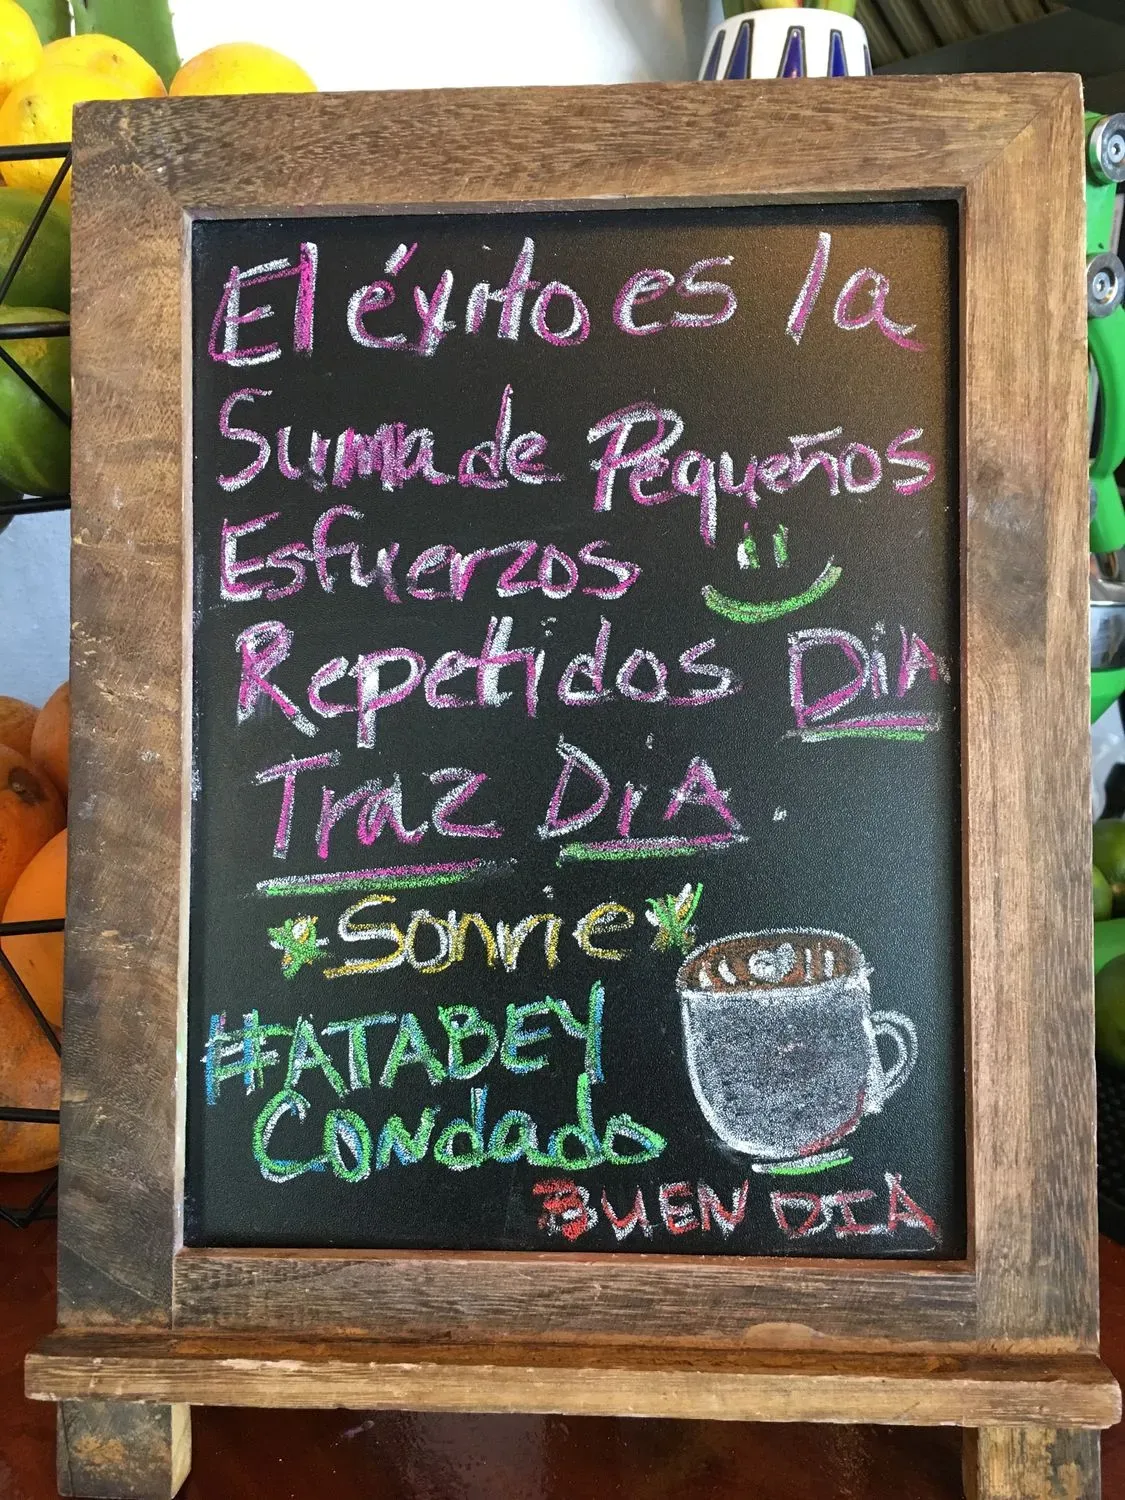 El éxito es la
Suma de Pequeños
Esfuerzos
Repetidos DiA
Traz DiA.
Sonrie
#ATABEY
Condado
BUEN DIA